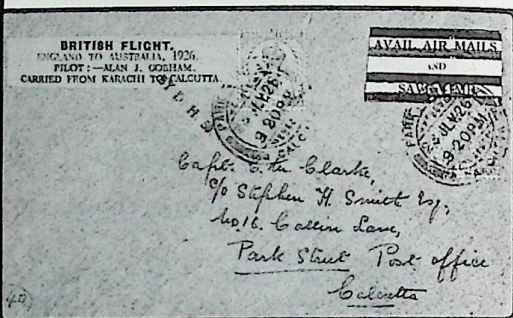 BRITISH FLIGHT.
ENGLAND TO AUSTRALIA, 1926.
PILOT :—ALAN J. COBHAM.
CARRIED FROM KARACHI TO CALCUTTA.
AVAIL AIR MAILS
AND
SAVE TIME
PARK
JLY 26
9 20PM
CALC
PARK
JLY 26
9 20PM
Capt. Clarke,
c/o Stephen H. Smith Esq.,
No 16. Collin Lane,
Park Street Post office
Calcutta
40